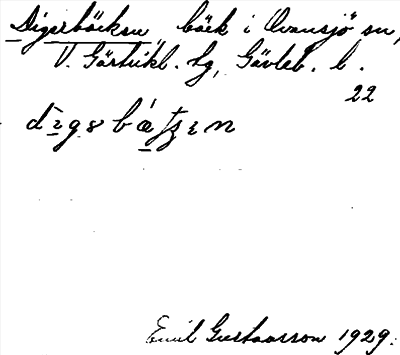 Digerbäcken bäck i Ovansjö sn,
V. Gästrikl. hg, Gävleb. l.
22
Emil Gustavsson 1929.